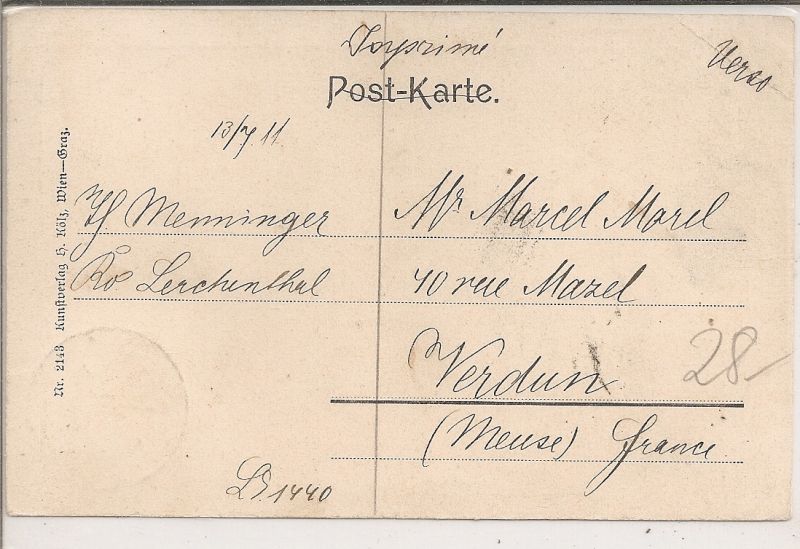 Imprimé
Verso
Post-Karte.
13/7 11
Th. Menninger
Ro Lerchenthal
Mr. Marcel Morel
40 rue Mazel
Verdun
(Meuse) France
28.-
1440
Nr. 2143 Kunstverlag H. Kölz, Wien—Graz.